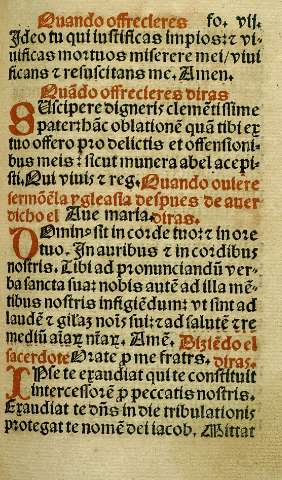 Quando offrecieres fo. vij.
Ideo tu qui iustificas impios: ⁊ vi⸗
uificas mortuos miserere mei/ viui
ficans ⁊ resuscitans me. Amen.
Quãdo offrecieres diras
SUscipere digneris clemẽtissime
pater: hãc oblationẽ quã tibi ex
tuo offero pro delictis et offensioni
bus meis: sicut munera abel acepi⸗
sti. Qui viuis ⁊ reg. Quando ouiere
sermõ ẽ la ygleasia despues de auer
dicho el Aue maria. diras.
DOmin⁹ sit in corde tuo: ⁊ in ore
tuo. In auribus ⁊ in cordibus
nostris. Tibi ad pronunciandũ ver⸗
ba sancta sua: nobis autẽ ad illa mẽ⸗
tibus nostris infigiẽdum: vt sint ad
laudẽ ⁊ gl'iaʒ noĩs sui: ⁊ ad salutẽ ⁊ re
mediũ aĩaꝝ nr̃aꝝ. Amẽ. Diziẽdo el
sacerdote Orate ꝓ me fratrs. diras.
IPse te exaudiat qui te constituit
intercessorẽ ꝓ peccatis nostris.
Exaudiat te dñs in die tribulationis
protegat te nomẽ dei iacob. Mittat